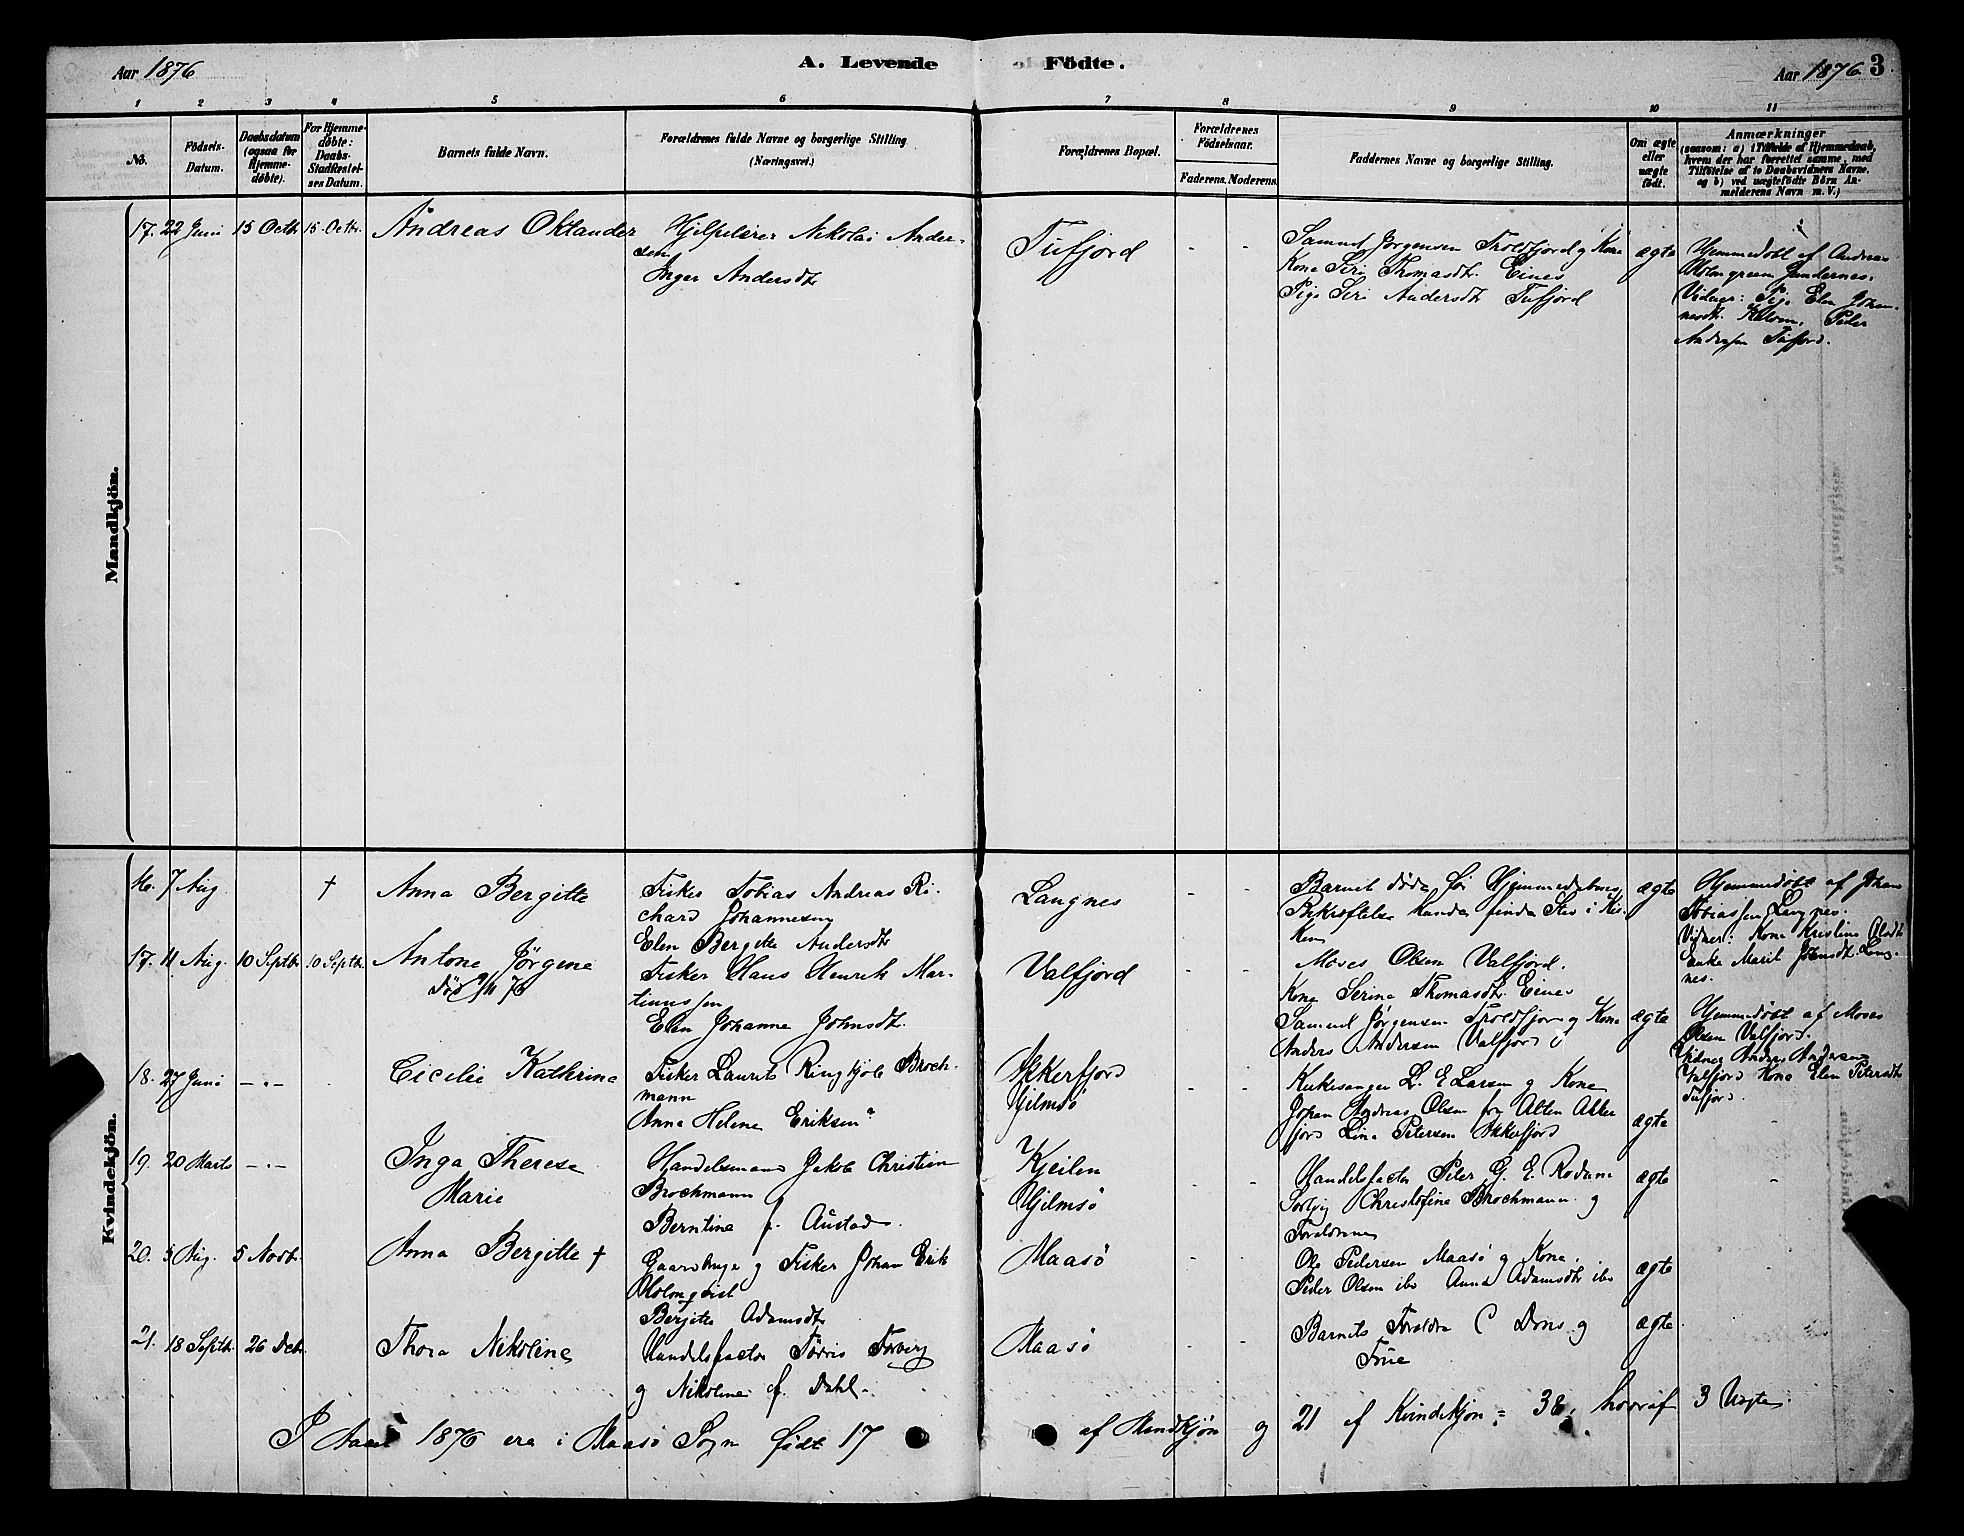 Aar 1876
A. Levende Födte.
Aar 1876 3
1 2 3 4 5 6 7 8 9 10 11
No.
Födsels-Datum.
Daabsdatum (ogsaa for Hjemme-döbte).
For Hjemme-döbte: Daabs-Stadfæstel-ses Datum.
Barnets fulde Navn.
Forældrenes fulde Navne og borgerlige Stilling
(Næringsvei.)
Forældrenes Bopæl.
Forældrenes Födselsaar.
Faderens. Moderens.
Faddernes Navne og borgerlige Stilling.
Om ægte eller uægte födt.
Anmærkninger
(saasom: a) i Tilfælde af Hjemmedaab,
hvem der har forrettet samme, med
Tilföielse af to Daabsvidners Navne.
og b) ved uægtefödte Börn An-
melderens Navn m. V.)
Mandkjön.
17. 22 Juni 15 Octbr. 15 Octbr. Andreas Oktander
Hjelpelærer Nikolai Ander-
sen
Inger Andersdtr
Tufjord
- -
Samuel Jørgensen Troldfjord og Kone
Kone Seri Thomasdtr. Eines
Pige Seri Andersdtr Tufjord
ægte
Hjemmedøbt af Andreas
Holmgreen
Vidner: Pige Elen Johan-
nesdtr. Peder
Andersen Tufjord.
Kvindekjön.
16. 7 Aug. † Anna Bergitte
Fisker Tobias Andreas Ri-
chard Johannesen
Elen Bergitte Andersdtr
Langnes
- -
Barnet døde før Hjemmedaabens
Bekræftelse kunde finde Sted i Kir-
ken
ægte
Hjemmedøbt af Johan
Tobiassen Langnes.
Vidner: Kone Kristine Olsdtr
Enke Marit Johnsdtr. Lang-
nes.
17. 11 Aug. 10 Septbr. 10 Septbr. Antone Jørgine
Død 9/11 76
Fisker Hans Henrik Mar-
tinussen
Elen Johanne Johnsdtr.
Valfjord
- -
Moses Olsen Valfjord.
Kone Serine Thomasdtr. Eines
Samuel Jørgensen Troldfjord og Kone
Anders Andersen Valfjord
ægte
Hjemmedøbt af Moses
Olsen Valfjord.
Vidner Anders Andersen
Valfjord Kone Elen Petersdtr
Tufjord.
18. 27 Juni -"- Cicelie Kathrine
Fisker Laurits Ringkjøb Broch-
mann
Anna Helene Eriksen
Akkerfjord
Hjelmsø
- -
Kirkesanger L. E Larsen og Kone
Johan Andreas Olsen fra Alten Akker
fjord Lina Petersen Akkerfjord
ægte
-
19. 20 Marts -"- Inga Therese
Marie
Handelsmand Jakob Christian
Brochmann
Berntine f. Austad.
Kjeilen
Hjelmsø
- -
Handelsfactor Peder G. E. Rodum
Solvig Christofine Brochmann og
Forældrene
ægte
-
20. 5 Aug. 5 Novbr. Anna Bergitte †
Gaardbruger og Fisker Johan Erik
Holmqvist
Bergitte Adamsdtr
Maasö
- -
Ole Pedersen Maasö og Kone
Peder Olsen ibd Anna Adamsdtr ibd
ægte
21. 18 Septbr. 26 Decbr. Thora Nikoline
Handelsfactor Tørris Torberg
og Nikoline f. Dahl.
Maasö
- -
Barnets Forældre C Dons og
Frue
ægte
I Aaret 1876 ere i Maasö Sogn født 17 af Mandkjøn og 21 af Kvindekjøn = 38, hvoraf 3 Uægte.